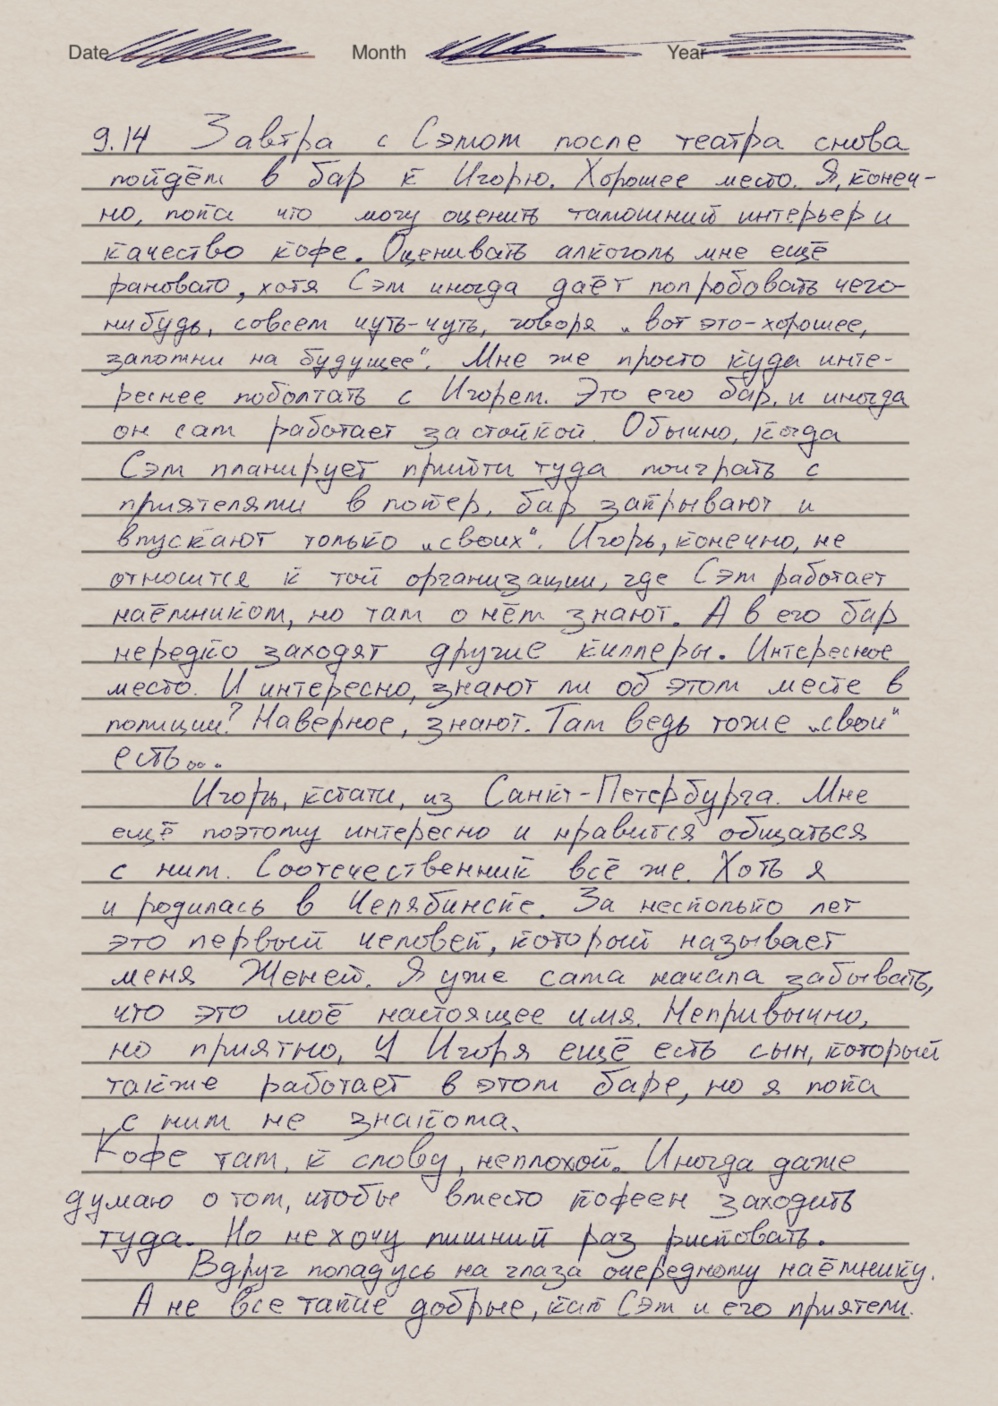 Date Month Year
9.14 Завтра с Сэмом после театра снова
пойдём в бар к Игорю. Хорошее место. Я, конеч-
но, пока что могу оценить тамошний интерьер и
качество кофе. Оценивать алкоголь мне ещё
рановато, хотя Сэм иногда даёт попробовать чего-
нибудь, совсем чуть-чуть, говоря „вот это-хорошее,
запомни на будущее“. Мне же просто куда инте-
реснее поболтать с Игорем. Это его бар, и иногда
он сам работает за стойкой. Обычно, когда
Сэм планирует прийти туда поиграть с
приятелями в покер, бар закрывают и
впускают только „своих“. Игорь, конечно, не
относится к той организации, где Сэм работает
наёмником, но там о нём знают. А в его бар
нередко заходят другие киллеры. Интересное
место. И интересно, знают ли об этом месте в
полиции? Наверное, знают. Там ведь тоже „свои“
есть...
Игорь, кстати, из Санкт-Петербурга. Мне
ещё поэтому интересно и нравится общаться
с ним. Соотечественник всё же. Хоть я
и родилась в Челябинске. За несколько лет
это первый человек, который называет
меня Женей. Я уже сама начала забывать,
что это моё настоящее имя. Непривычно,
но приятно. У Игоря ещё есть сын, который
также работает в этом баре, но я пока
с ним не знакома.
Кофе там, к слову, неплохой. Иногда даже
думаю о том, чтобы вместо кофеен заходить
туда. Но не хочу лишний раз рисковать.
Вдруг попадусь на глаза очередному наёмнику.
А не все такие добрые, как Сэм и его приятели.